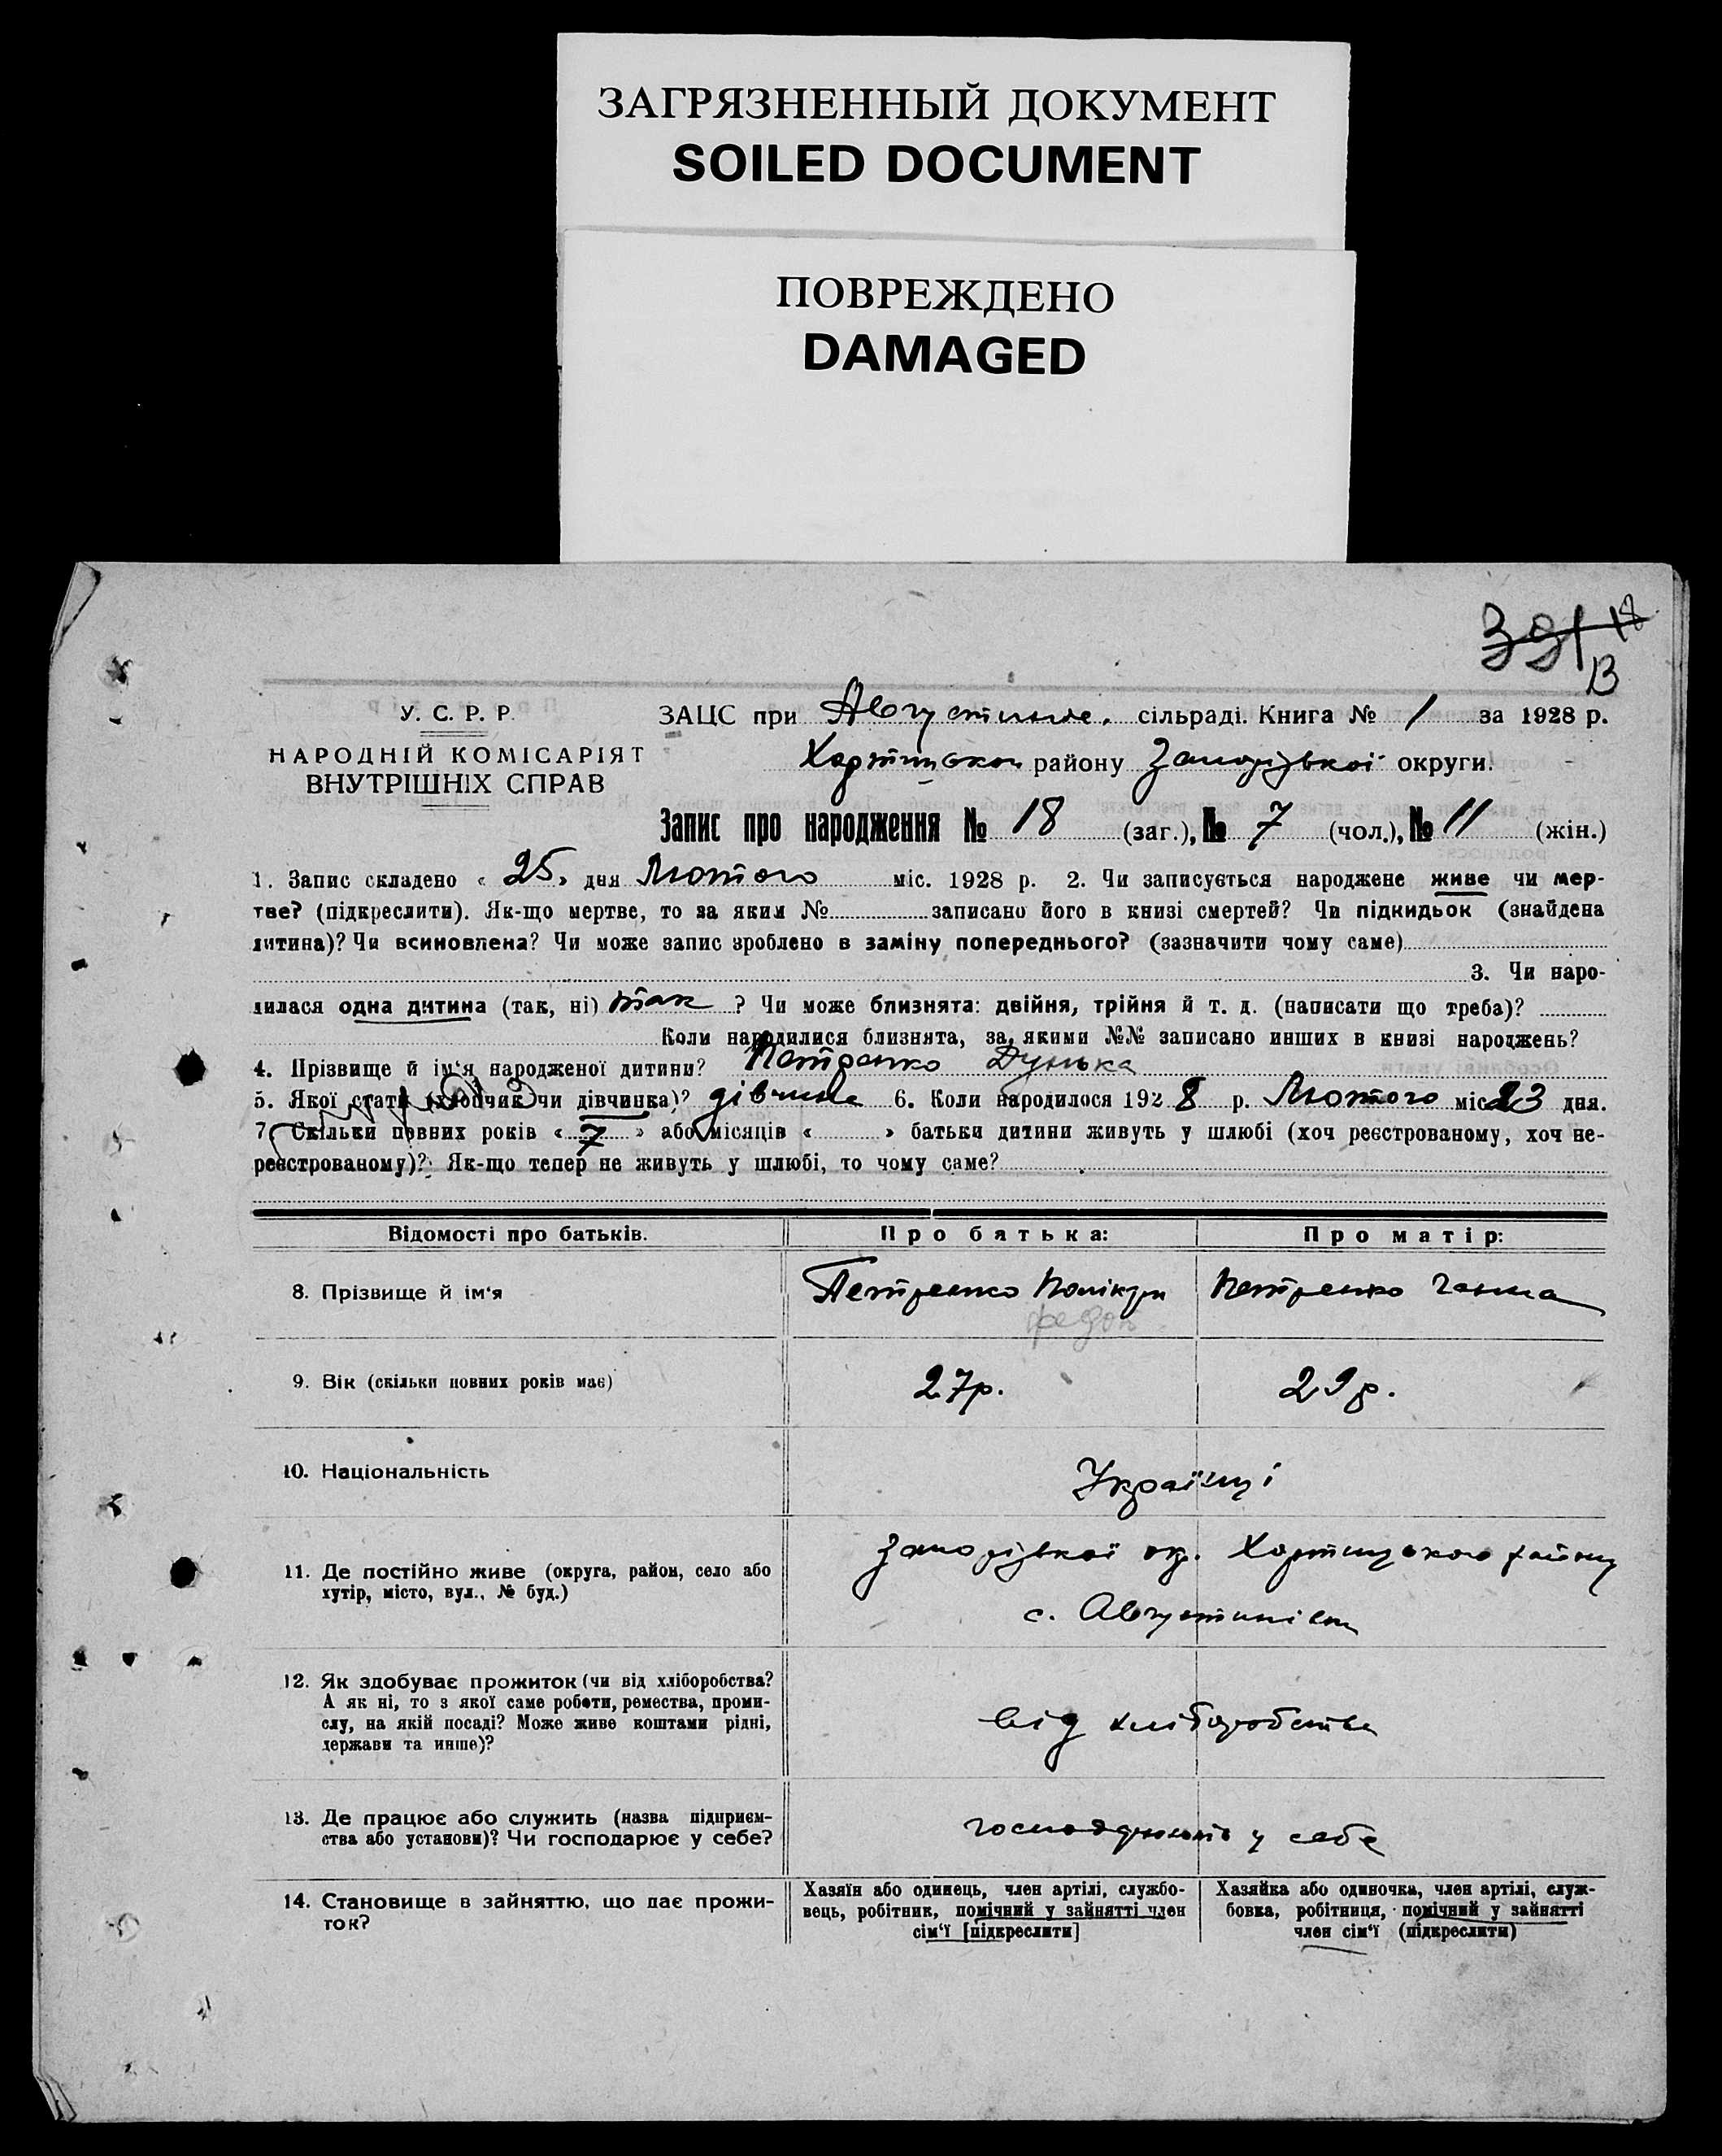 ЗАГРЯЗНЕННЫЙ ДОКУМЕНТ
SOILED DOCUMENT
ПОВРЕЖДЕНО
DAMAGED
391 18
13
У. С. Р. Р.
НАРОДНІЙ КОМІСАРІЯТ
ВНУТРІШНІХ СПРАВ
ЗАЦС при Августинів. сільраді. Книга № 1 за 1928 р.
Хортицької району Запорізької округи.
Запис про народження № 18 (заг.), № 7 (чол.), № 11 (жін.)
1. Запис складено « 25 » дня Лютого міс. 1928 р. 2. Чи записується народжене живе чи мер-
тве? (підкреслити). Як-що мертве, то за яким № записано його в книзі смертей? Чи підкидьок (знайдена
дитина)? Чи всиновлена? Чи може запис зроблено в заміну попереднього? (зазначити чому саме)
3. Чи наро-
дилася одна дитина (так, ні) так ? Чи може близнята: двійня, трійня й т. д. (написати що треба)?
Коли народилися близнята, за якими №№ записано инших в книзі народжень?
4. Прізвище й ім'я народженої дитини? Петренко Дунька
5. Якої стати (хлопчик чи дівчинка)? дівчина 6. Коли народилося 1928 р. Лютого міс. 23 дня.
7. Скільки повних років « 7 » або місяців « » батьки дитини живуть у шлюбі (хоч реєстрованому, хоч не-
реєстрованому)? Як-що тепер не живуть у шлюбі, то чому саме?
Відомості про батьків. Про батька: Про матір:
8. Прізвище й ім'я Петренко Полікарп Петренко Ганна
9. Вік (скільки повних років має) 27р. 29р.
10. Національність Українці
11. Де постійно живе (округа, район, село або
хутір, місто, вул., № буд.)
Запорізької окр. Хортицького району
с. Августинівки
12. Як здобуває прожиток (чи від хліборобства?
А як ні, то з якої саме роботи, ремества, проми-
слу, на якій посаді? Може живе коштами рідні,
держави та инше)?
від хліборобства
13. Де працює або служить (назва підприєм-
ства або установи)? Чи господарює у себе?
господарюють у себе
14. Становище в зайняттю, що дає прожи-
ток?
Хазяїн або одинець, член артілі, службо-
вець, робітник, помічний у зайнятті член
сім'ї [підкреслити]
Хазяйка або одиночка, член артілі, служ-
бовка, робітниця, помічний у зайнятті
член сім'ї (підкреслити)